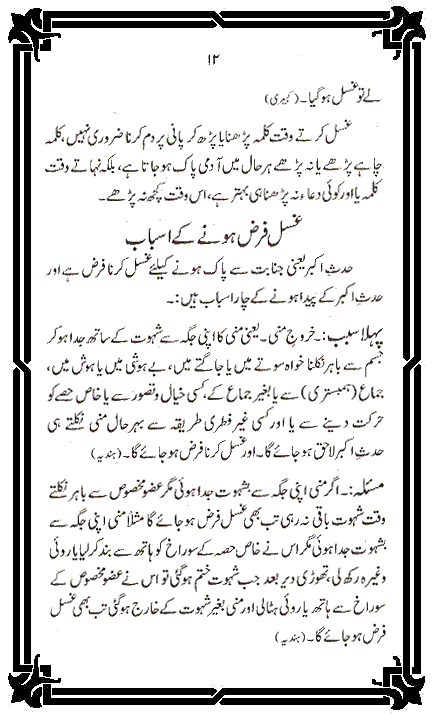 ۱۲
لے تو غسل ہو گیا۔ (کبیری)
غسل کرتے وقت کلمہ پڑھنا یا پڑھ کر پانی پر دم کرنا ضروری نہیں، کلمہ
چاہے پڑھے یا نہ پڑھے ہر حال میں آدمی پاک ہو جاتا ہے، بلکہ نہاتے وقت
کلمہ یا اور کوئی دعاء نہ پڑھنا ہی بہتر ہے، اس وقت کچھ نہ پڑھے۔
غسل فرض ہونے کے اسباب
حدثِ اکبر یعنی جنابت سے پاک ہونے کیلئے غسل کرنا فرض ہے اور
حدثِ اکبر کے پیدا ہونے کے چار اسباب ہیں:۔
پہلا سبب:۔ خروجِ منی۔ یعنی منی کا اپنی جگہ سے شہوت کے ساتھ جدا ہو کر
جسم سے باہر نکلنا خواہ سوتے میں یا جاگتے میں، بے ہوشی میں یا ہوش میں،
جماع (ہمبستری) سے یا بغیر جماع کے، کسی خیال و تصور سے یا خاص حصے کو
حرکت دینے سے یا اور کسی غیر فطری طریقہ سے بہر حال منی نکلتے ہی
حدثِ اکبر لاحق ہو جائے گا۔ اور غسل کرنا فرض ہو جائے گا۔ (ہندیہ)
مسئلہ:۔ اگر منی اپنی جگہ سے بشہوت جدا ہوئی مگر عضو مخصوص سے باہر نکلتے
وقت شہوت باقی نہ رہی تب بھی غسل فرض ہو جائے گا مثلاً منی اپنی جگہ سے
بشہوت جدا ہوئی مگر اس نے خاص حصہ کے سوراخ کو ہاتھ سے بند کر لیا یا روئی
وغیرہ رکھ لی، تھوڑی دیر بعد جب شہوت ختم ہو گئی تو اس نے عضو مخصوص کے
سوراخ سے ہاتھ یا روئی ہٹالی اور منی بغیر شہوت کے خارج ہو گئی تب بھی غسل
فرض ہو جائے گا۔ (ہندیہ)